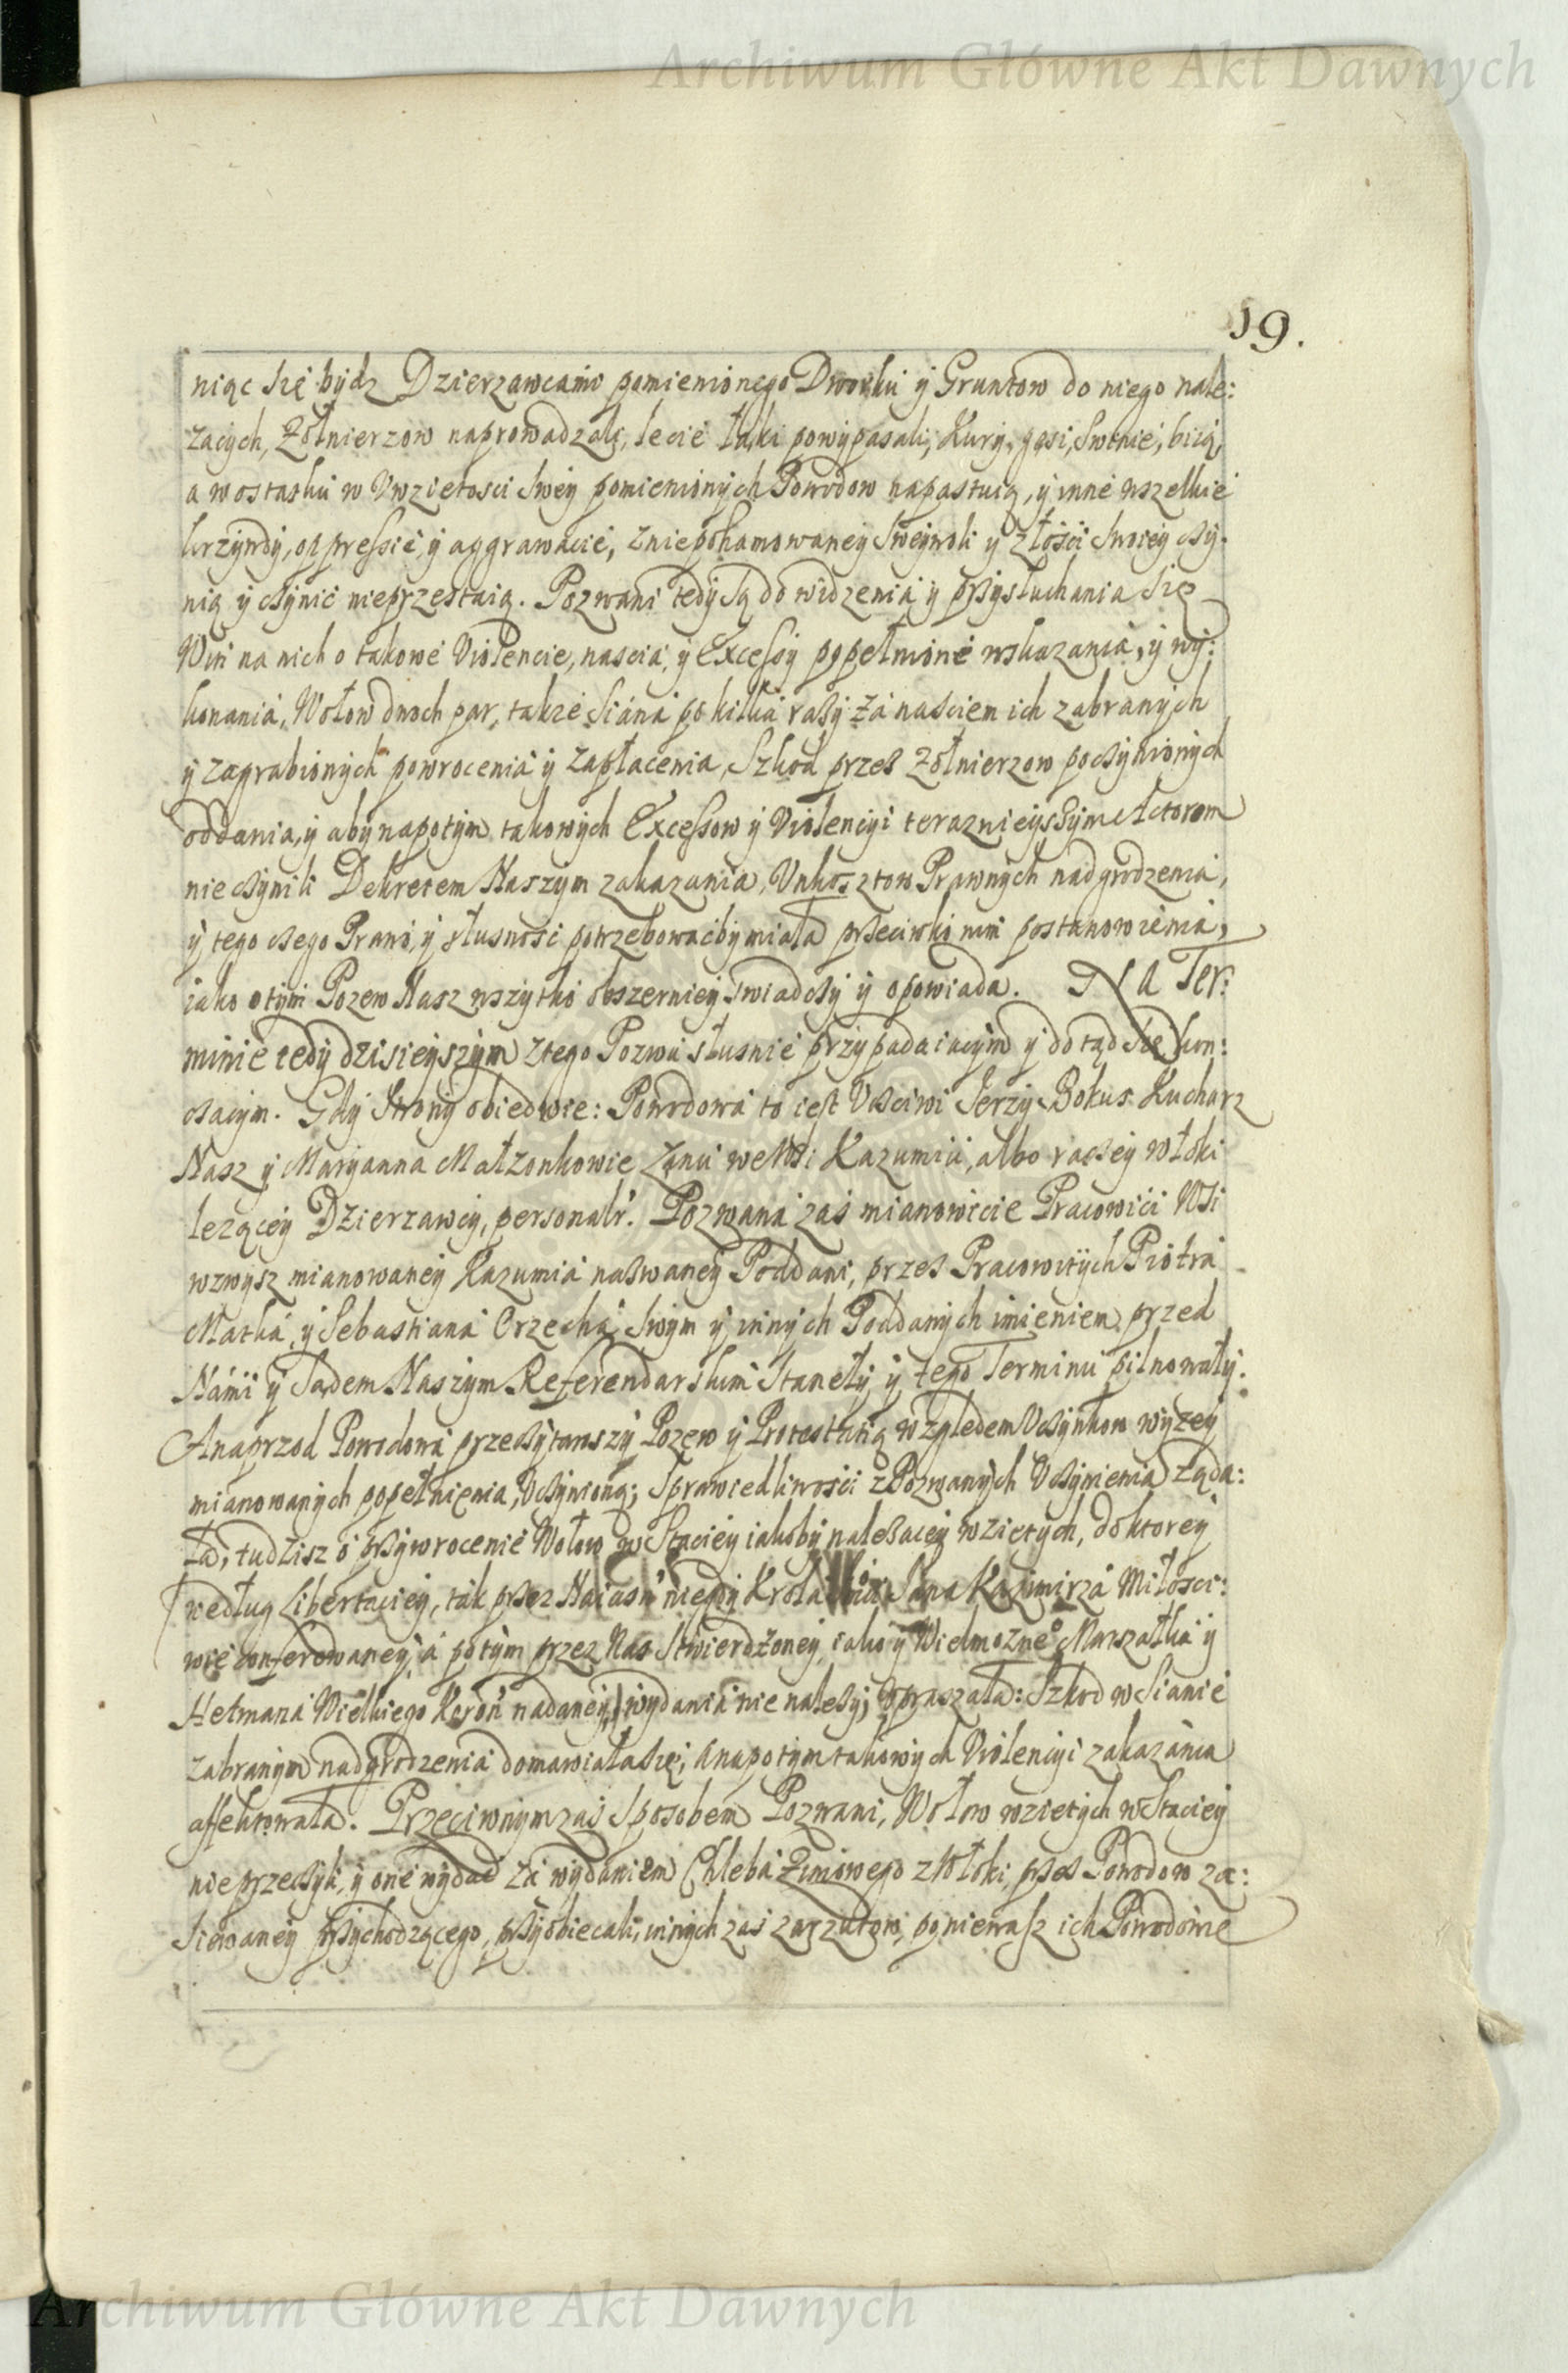 Archiwum Główne Akt Dawnych
19.
niąc się bydz Dzierzawcami pomienionego Dworku ÿ Gruntow do niego nale:
zacÿch, Żołnierzow naprowadzali, lecie łąki powÿpasali, Kurÿ, gęsi, Swinie, biią,
a wostatku w Vwziętosci Swéÿ pomienionÿch Powodow napastuią, ÿ inne wszelkie
krzÿwdÿ, oppressie, ÿ aggrawacie, zniepohamowaneÿ Sweÿwoli ÿ złosci Swoieÿ czÿ:
nią ÿ czÿnić nieprzestaią. Pozwani tedÿ Są do widzenia ÿ przÿsłuchania Się
Win na nich o takowe Violencie, nascia, ÿ Excessÿ popełnione wskazania, ÿ wÿ:
konania, Wołow dwoch par, także Siana po kilka razÿ za nasciem ich zabranÿch
ÿ zagrabionÿch powrocenia ÿ zapłacenia, Szkod przez Żołnierzow poczÿnionÿch
oddania, ÿ abÿ napotÿm takowÿch Excessow ÿ Violencÿi terazniéÿszÿm Actorom
nieczÿnili Dekretem Naszÿm zakazania, Vnkosztow Prawnÿch nadgrodzenia,
ÿ tego czego Prawo, ÿ słusnosc potrzebowaćbÿ miała przeciwko nim postanowienia,
iako otÿm Pozew Nasz wszÿtko obszerniéÿ swiadczÿ ÿ opowiada. Na Ter:
minie tedÿ dzisieÿszÿm ztego Pozwu słusnie przÿpadaiącÿm ÿ dotąd Się kon:
czącÿm. Gdÿ Stronÿ obiedwie: Powodowa to iest Vczciwi Jerzÿ Bokus Kucharz
Nasz ÿ Marÿanna Małzonkowie Łanu weWsi Kazumiu, albo raczéÿ włoki
lezącéÿ Dzierzawcÿ, personalr. Pozwana zas mianowicie Pracowici Wsi
wzwÿsz mianowanéÿ Kazumia nazwaneÿ Poddani, przez Pracowitÿch Piotra
Matka, ÿ Sebastiana Orzecha, Swÿm ÿ innÿch Poddanÿch imieniem, przed
Nami ÿ Sądem Naszÿm Referendarskim Stanełÿ, ÿ tego Terminu pilnowałÿ.
Anaprzod Powodowa przeczÿtawszÿ Pozew ÿ Protestatią względem Vczÿnkow wÿzéÿ
mianowanÿch popełnienia, Vczÿnioną; Sprawiedliwosci z Pozwanÿch Vczÿnienia żąda:
ła, tudzisz o przÿwrocenie Wołow w Staciéÿ iakobÿ należacéÿ wziętÿch, doktoreÿ
według Libertaciéÿ, tak przez Naiasn niegdÿ Krola Jana Kazimirza Miłosci:
wie conferowanéÿ, a potÿm przez Nas Stwierdzonéÿ, iako ÿ Wielmozne° Marszałka ÿ
Hetmana Wielkiego Koron nadaneÿ, wÿdania nie należÿ, upraszała: Szkod w Sianie
zabranÿm nadgrodzenia domawiała się, Anapotÿm takowÿch Violencÿi zakazania
affektowała. Przeciwnÿm zas Sposobem Pozwani, Wołow wziętÿch w Staciéÿ
nieprzeczÿli, ÿ one wÿdać za wÿdaniem Chleba Zimowego z Włoki, przez Powodow za:
Siewanéÿ przÿchodzącego, przÿobiecali, innÿch zas zarzutow, poniewasz ich Powodowie
Archiwum Główne Akt Dawnych